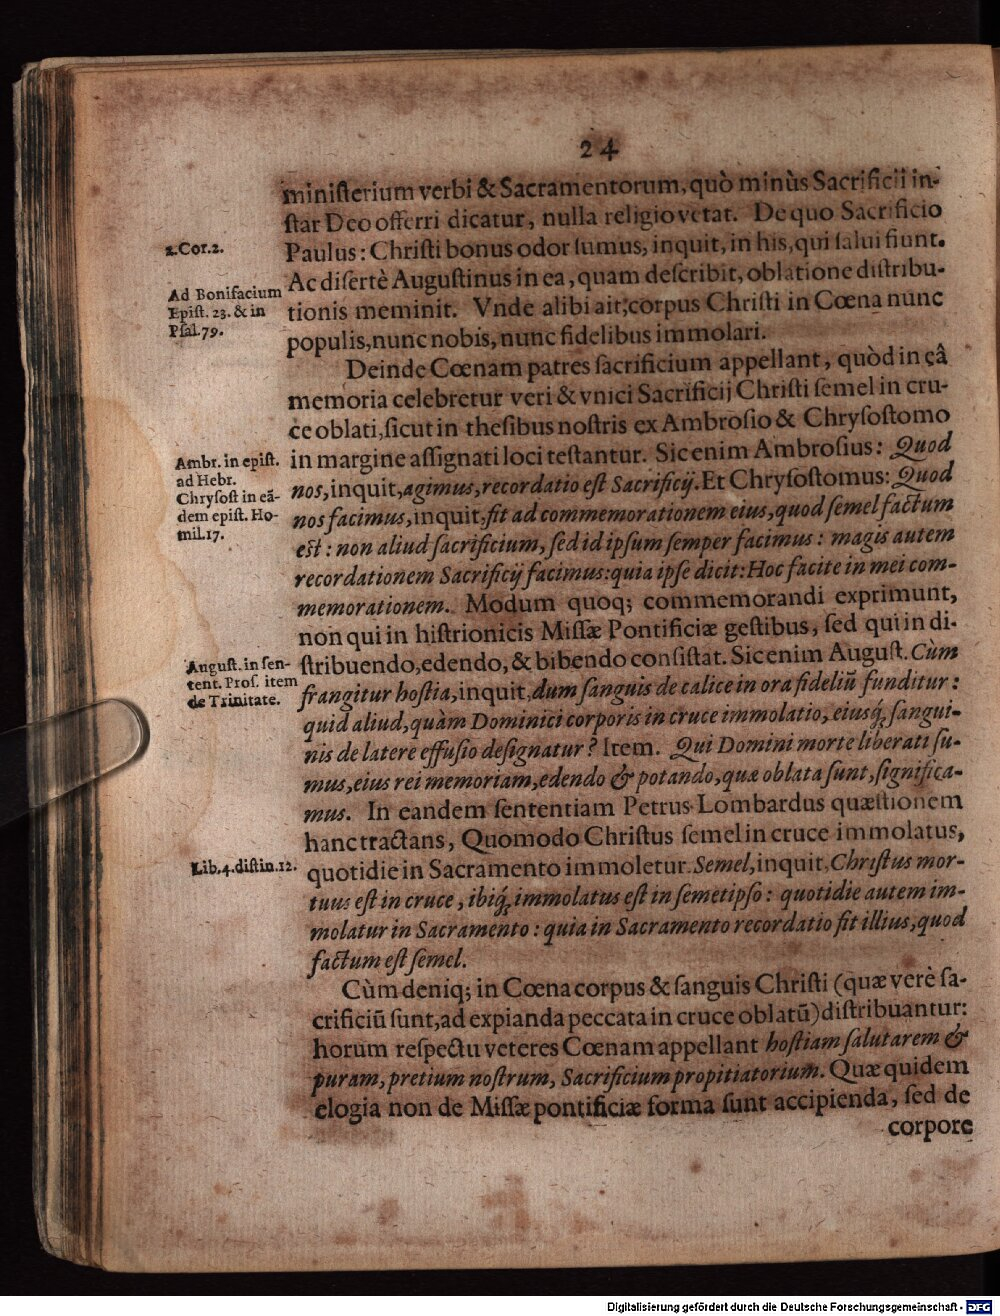 24
ministerium verbi & Sacramentorum, quò minùs Sacrificii in-
star Deo offerri dicatur, nulla religio vetat. De quo Sacrificio
2.Cor.2.
Paulus: Christi bonus odor sumus, inquit, in his, qui salui fiunt.
Ac disertè Augustinus in ea, quam describit, oblatione distribu-
Ad Bonifacium
Epist. 23. & in
Psal.79.
tionis meminit. Vnde alibi ait, corpus Christi in Cœna nunc
populis, nunc nobis, nunc fidelibus immolari.
Deinde Cœnam patres sacrificium appellant, quòd in eâ
memoria celebretur veri & vnici Sacrificij Christi semel in cru-
ce oblati, sicut in thesibus nostris ex Ambrosio & Chrysostomo
Ambr. in epist.
ad Hebr.
Chrysost in eã-
dem epist. Ho-
mil.17.
in margine assignati loci testantur. Sic enim Ambrosius: Quod
nos, inquit, agimus, recordatio est Sacrificij. Et Chrysostomus: Quod
nos facimus, inquit, fit ad commemorationem eius, quod semel factum
est: non aliud sacrificium, sed id ipsum semper facimus: magis autem
recordationem Sacrificij facimus: quia ipse dicit: Hoc facite in mei com-
memorationem. Modum quoq; commemorandi exprimunt,
non qui in histrionicis Missæ Pontificiæ gestibus, sed qui in di-
August. in sen-
tent. Pros. item
de Trinitate.
stribuendo, edendo, & bibendo consistat. Sic enim August. Cùm
frangitur hostia, inquit, dum sanguis de calice in ora fideliũ funditur:
quid aliud, quàm Dominici corporis in cruce immolatio, eiusq́; sangui-
nis de latere effusio designatur? Item. Qui Domini morte liberati su-
mus, eius rei memoriam, edendo & potando, quæ oblata sunt, significa-
mus. In eandem sententiam Petrus Lombardus quæstionem
hanc tractans, Quomodo Christus semel in cruce immolatus,
Lib.4.distin.12.
quotidie in Sacramento immoletur. Semel, inquit, Christus mor-
tuus est in cruce, ibiq́; immolatus est in semetipso: quotidie autem im-
molatur in Sacramento: quia in Sacramento recordatio fit illius, quod
factum est semel.
Cùm deniq; in Cœna corpus & sanguis Christi (quæ verè sa-
crificiũ sunt, ad expianda peccata in cruce oblatũ) distribuantur:
horum respectu veteres Cœnam appellant hostiam salutarem &
puram, pretium nostrum, Sacrificium propitiatorium. Quæ quidem
elogia non de Missæ pontificiæ forma sunt accipienda, sed de
corpore
Digitalisierung gefördert durch die Deutsche Forschungsgemeinschaft - DFG